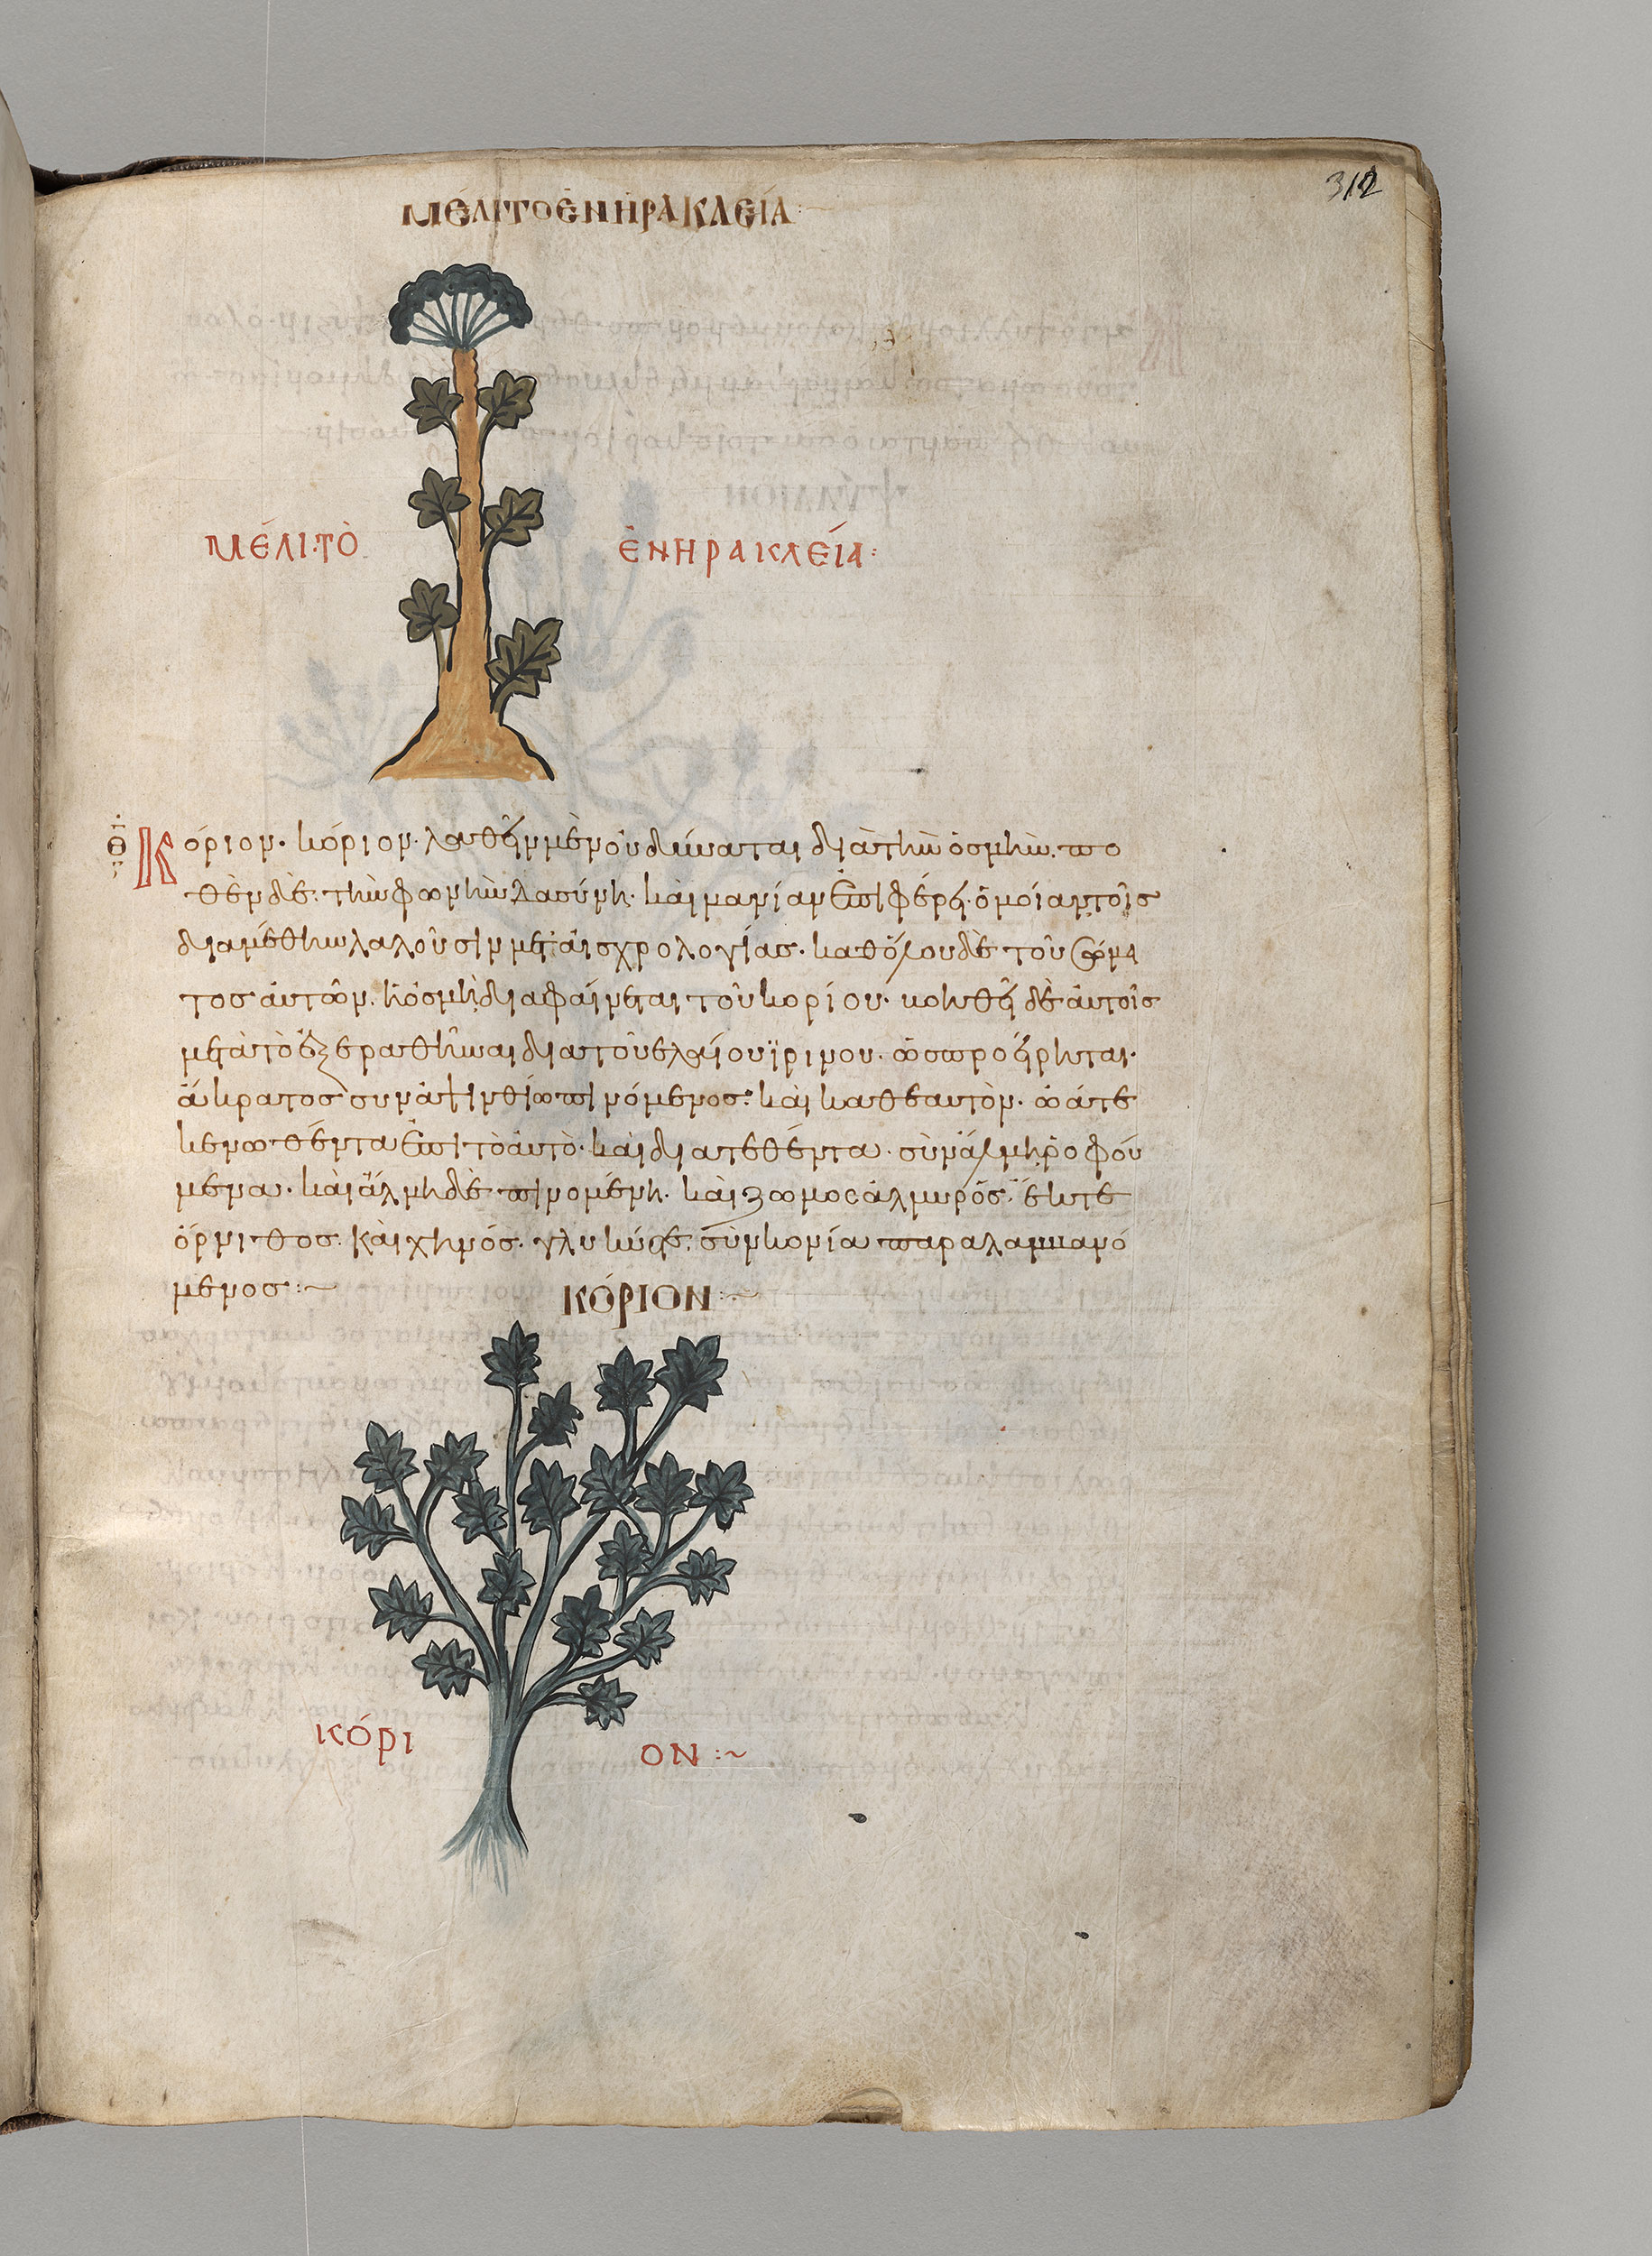 312
ΜΕΛΙ ΤΟ ΕΝ ΗΡΑΚΛΕΙΑ:~
ΜΕΛΙ· ΤΟ ΕΝ ΗΡΑΚΛΕΙΑ:
Κόριον· κόριον· λαθεῖν μὲν οὐ δύναται διὰ τὴν ὀσμὴν. πο
θὲν δὲ· τὴν φωνὴν δασύνει· καὶ μανίαν ἐπιφέρει· ὁμοίαν τοῖς
διὰ μέθην λαλοῦσιν μετ᾽ αἰσχρολογίας· καθόλου δὲ τοῦ σώμα
τος αὐτῶν. ἡ ὀσμὴ διαφαίνεται τοῦ κορίου· βοηθεῖ δὲ αὐτοῖς
μετὰ τὸ ἐξεραθῆναι διὰ τοῦ ἐλαίου ἰρίνου· ὡς προείρηται·
ἄκρατος σὺν ἀψινθίω πινόμενος· καὶ καθεαυτὸν· ὠά τε
κενωθέντα ἐπὶ τὸ αὐτὸ· καὶ διατεθέντα· σὺν ἅλμη ῥοφού
μενα· καὶ ἅλμη δὲ πινομένη· καὶ ζωμος ἁλμυρός· ἔκ τε
ὄρνιθος· καὶ χηνός· γλυκύς· σὺν κονία παραλαμβανό
μενος:~
ΚΟΡΙΟΝ:~
ΚΟΡΙ ΟΝ:~